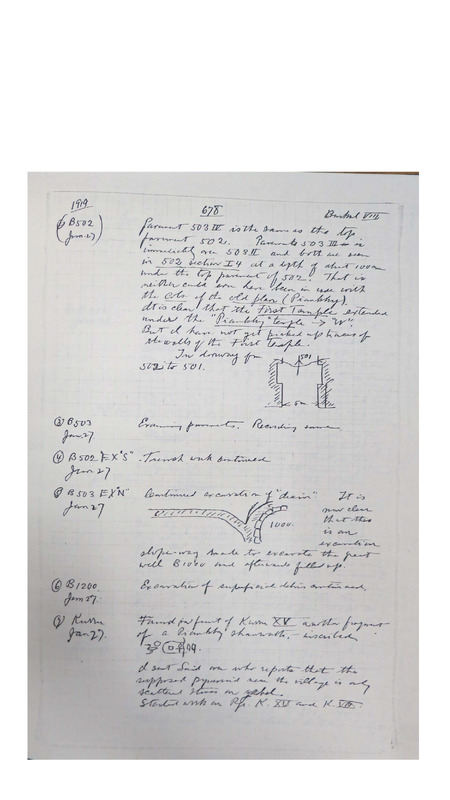 1919
678
Barkal VIII
B502
Jan 27
Pavement 503 III is the same as the top
pavement 502. Pavements 503 III is
immediately over 503 II and both are seen
in 502 section I4 at a depth of about 100 cm
under the top pavement of 502. That is
neither could ever have been in use with
the cols of the old floor (Piankhy).
It is clear that the First Temple extended
under the "Piankhy" temple → "W".
But I have not yet picked up traces of
the walls of the First Temple.
In drawing for
502 to 501.
501
③ B503
Jan 27.
Examining pavements. Recording same
④ B502 "EX"S"
Jan 27
Trench work continued
⑤ B503 EX"N"
Jan 27
Continued excavation of "drain" It is
now clear
that this
is an
excavation
1000.
slope-way made to excavate the great
well B1000 and afterwards filled up.
⑥ B1200.
Jan 27.
Excavation of superficial debris continued.
⑦ Kurru
Jan 27.
Found in front of Kurru XV another fragment
of a Piankhy shawabti, inscribed
I sent Said over who reports that the
supposed pyramid near the village is only
scattered stones on gebel.
Started work on Pyr. K. XV and K. VIII.